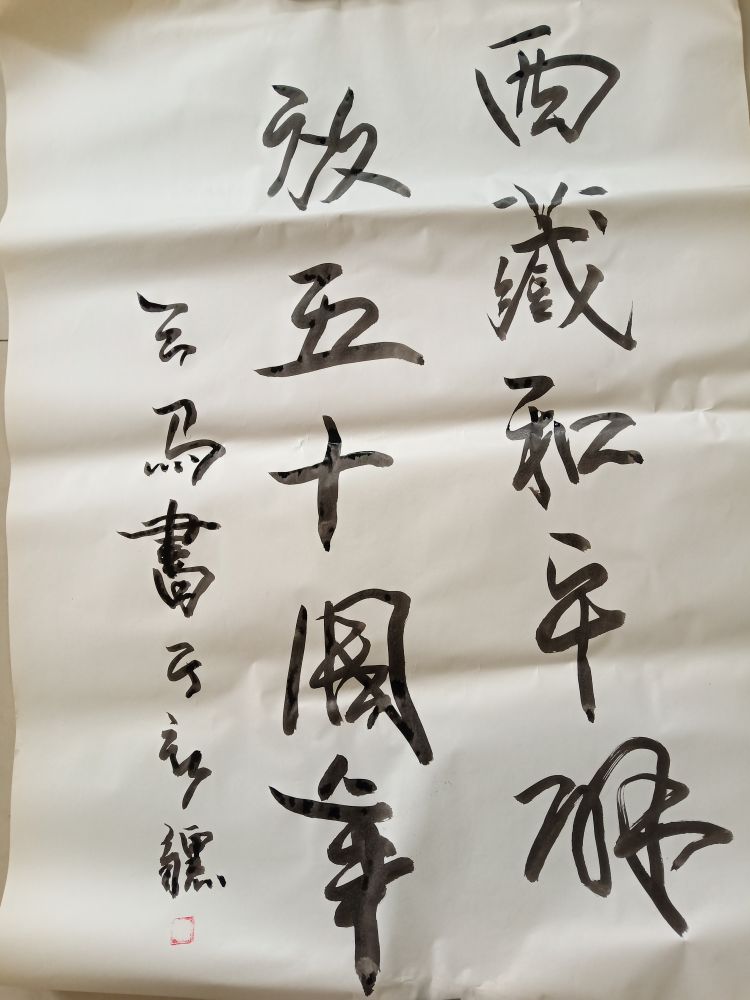 西藏和平解
放五十周年
云马书于新疆